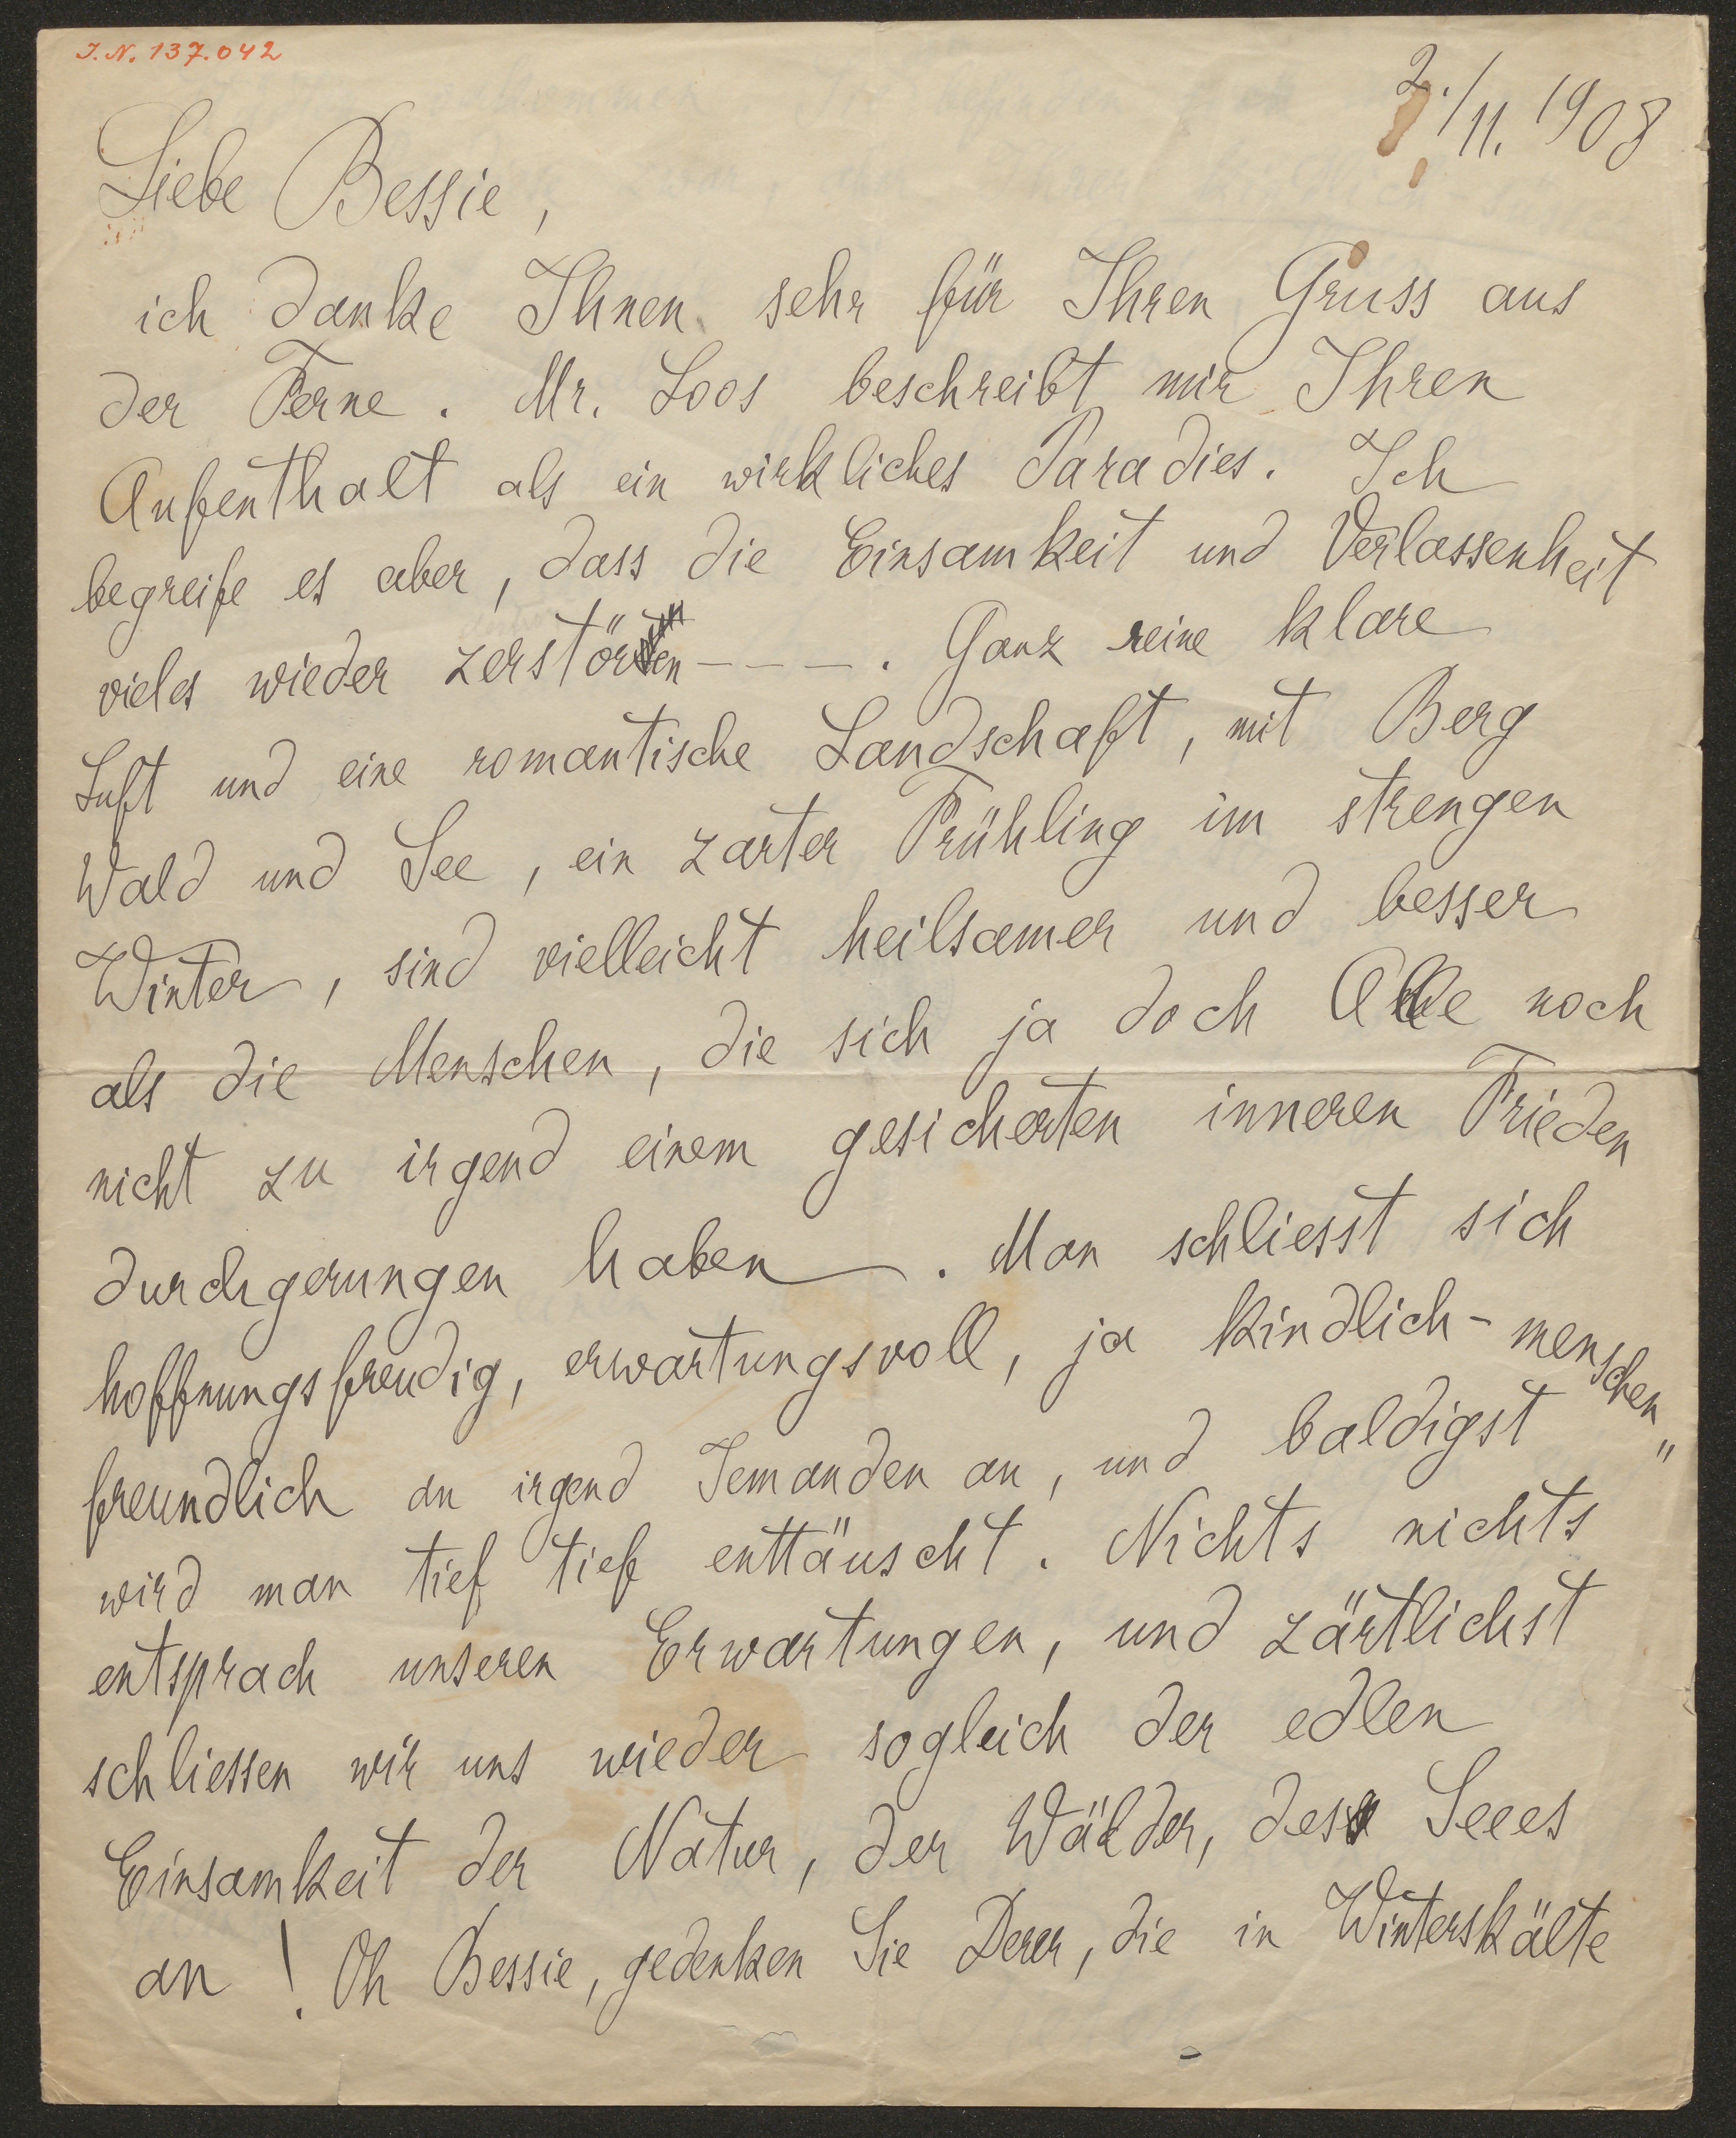 I.N. 137.042
2./11. 1908
Liebe Bessie,
ich danke Ihnen sehr für Ihren Gruss aus
der Ferne. Mr. Loos beschreibt mir Ihren
Aufenthalt als ein wirkliches Paradies. Ich
begreife es aber, dass die Einsamkeit und Verlassenheit
vieles wieder zerstören - - - -. Ganz reine klare
Luft und eine romantische Landschaft, mit Berg
Wald und See, ein zarter Frühling im strengen
Winter, sind vielleicht heilsamer und besser
als die Menschen, die sich ja doch Alle noch
nicht zu irgend einem gesicherten inneren Frieden
durchgerungen haben. Man schliesst sich
hoffnungsfreudig, erwartungsvoll, ja kindlich-menschen"
freundlich an irgend Jemanden an, und baldigst
wird man tief tief enttäuscht. Nichts nichts
entsprach unseren Erwartungen, und zärtlichst
schliessen wir uns wieder sogleich der edlen
Einsamkeit der Natur, der Wälder, des Seees
an! Oh Bessie, gedenken Sie Derer, die in Winterskälte